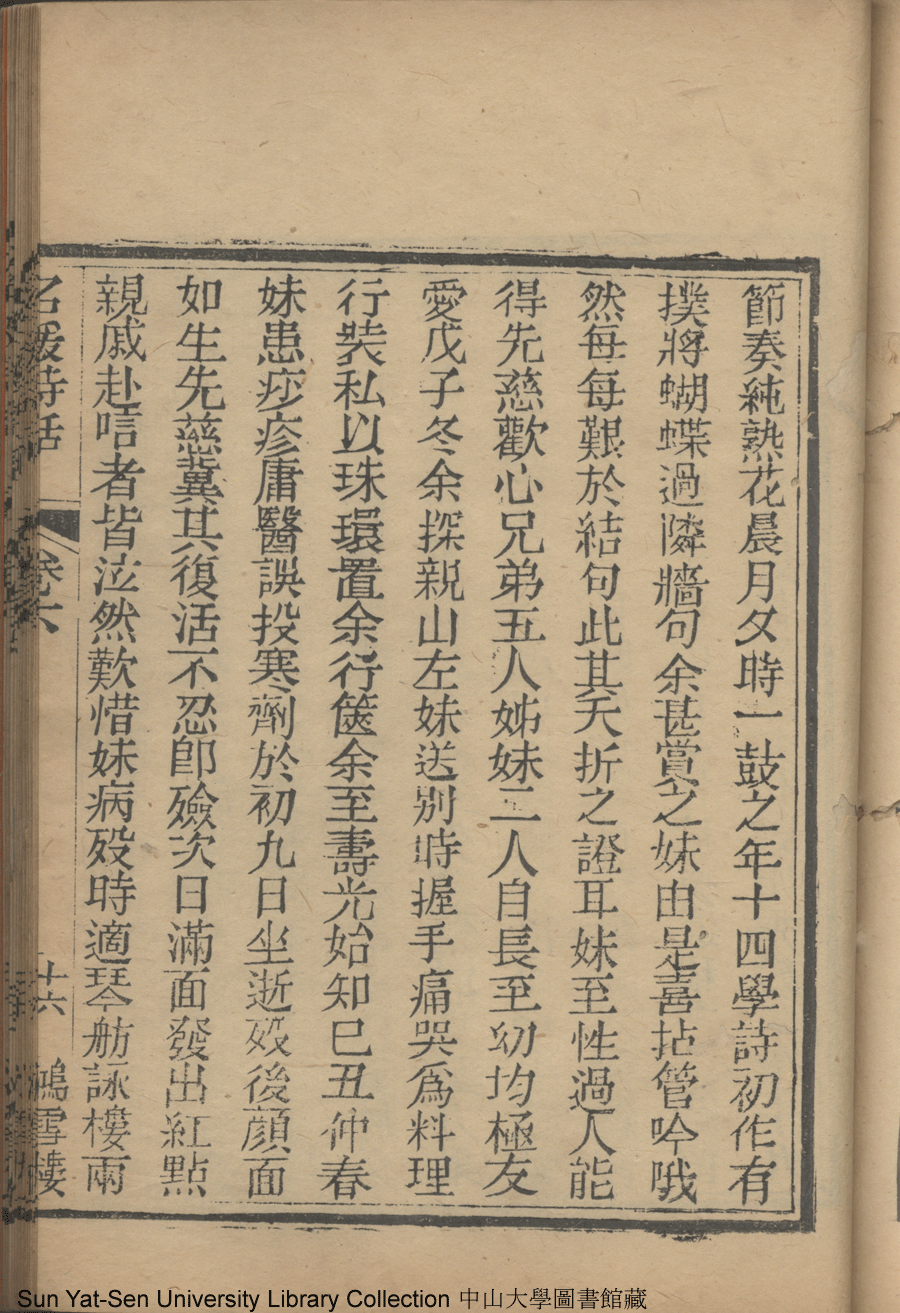 節奏純熟花晨月夕時一鼓之年十四學詩初作有
撲將蝴蝶過隣牆句余甚賞之妹由是喜拈管吟哦
然每每艱於結句此其夭折之證耳妹至性過人能
得先慈歡心兄弟五人姊妹二人自長至幼均極友
愛戊子冬余探親山左妹送別時握手痛哭爲料理
行裝私以珠環置余行篋余至壽光始知巳丑仲春
妹患痧疹庸醫誤投寒劑於初九日坐逝歿後顏面
如生先慈冀其復活不忍卽殮次日滿面發出紅點
親戚赴唁者皆泣然歎惜妹病歿時適琴舫詠樓兩
名媛詩話 卷六 十六 鴻雪樓
Sun Yat-Sen University Library Collection 中山大學圖書館藏